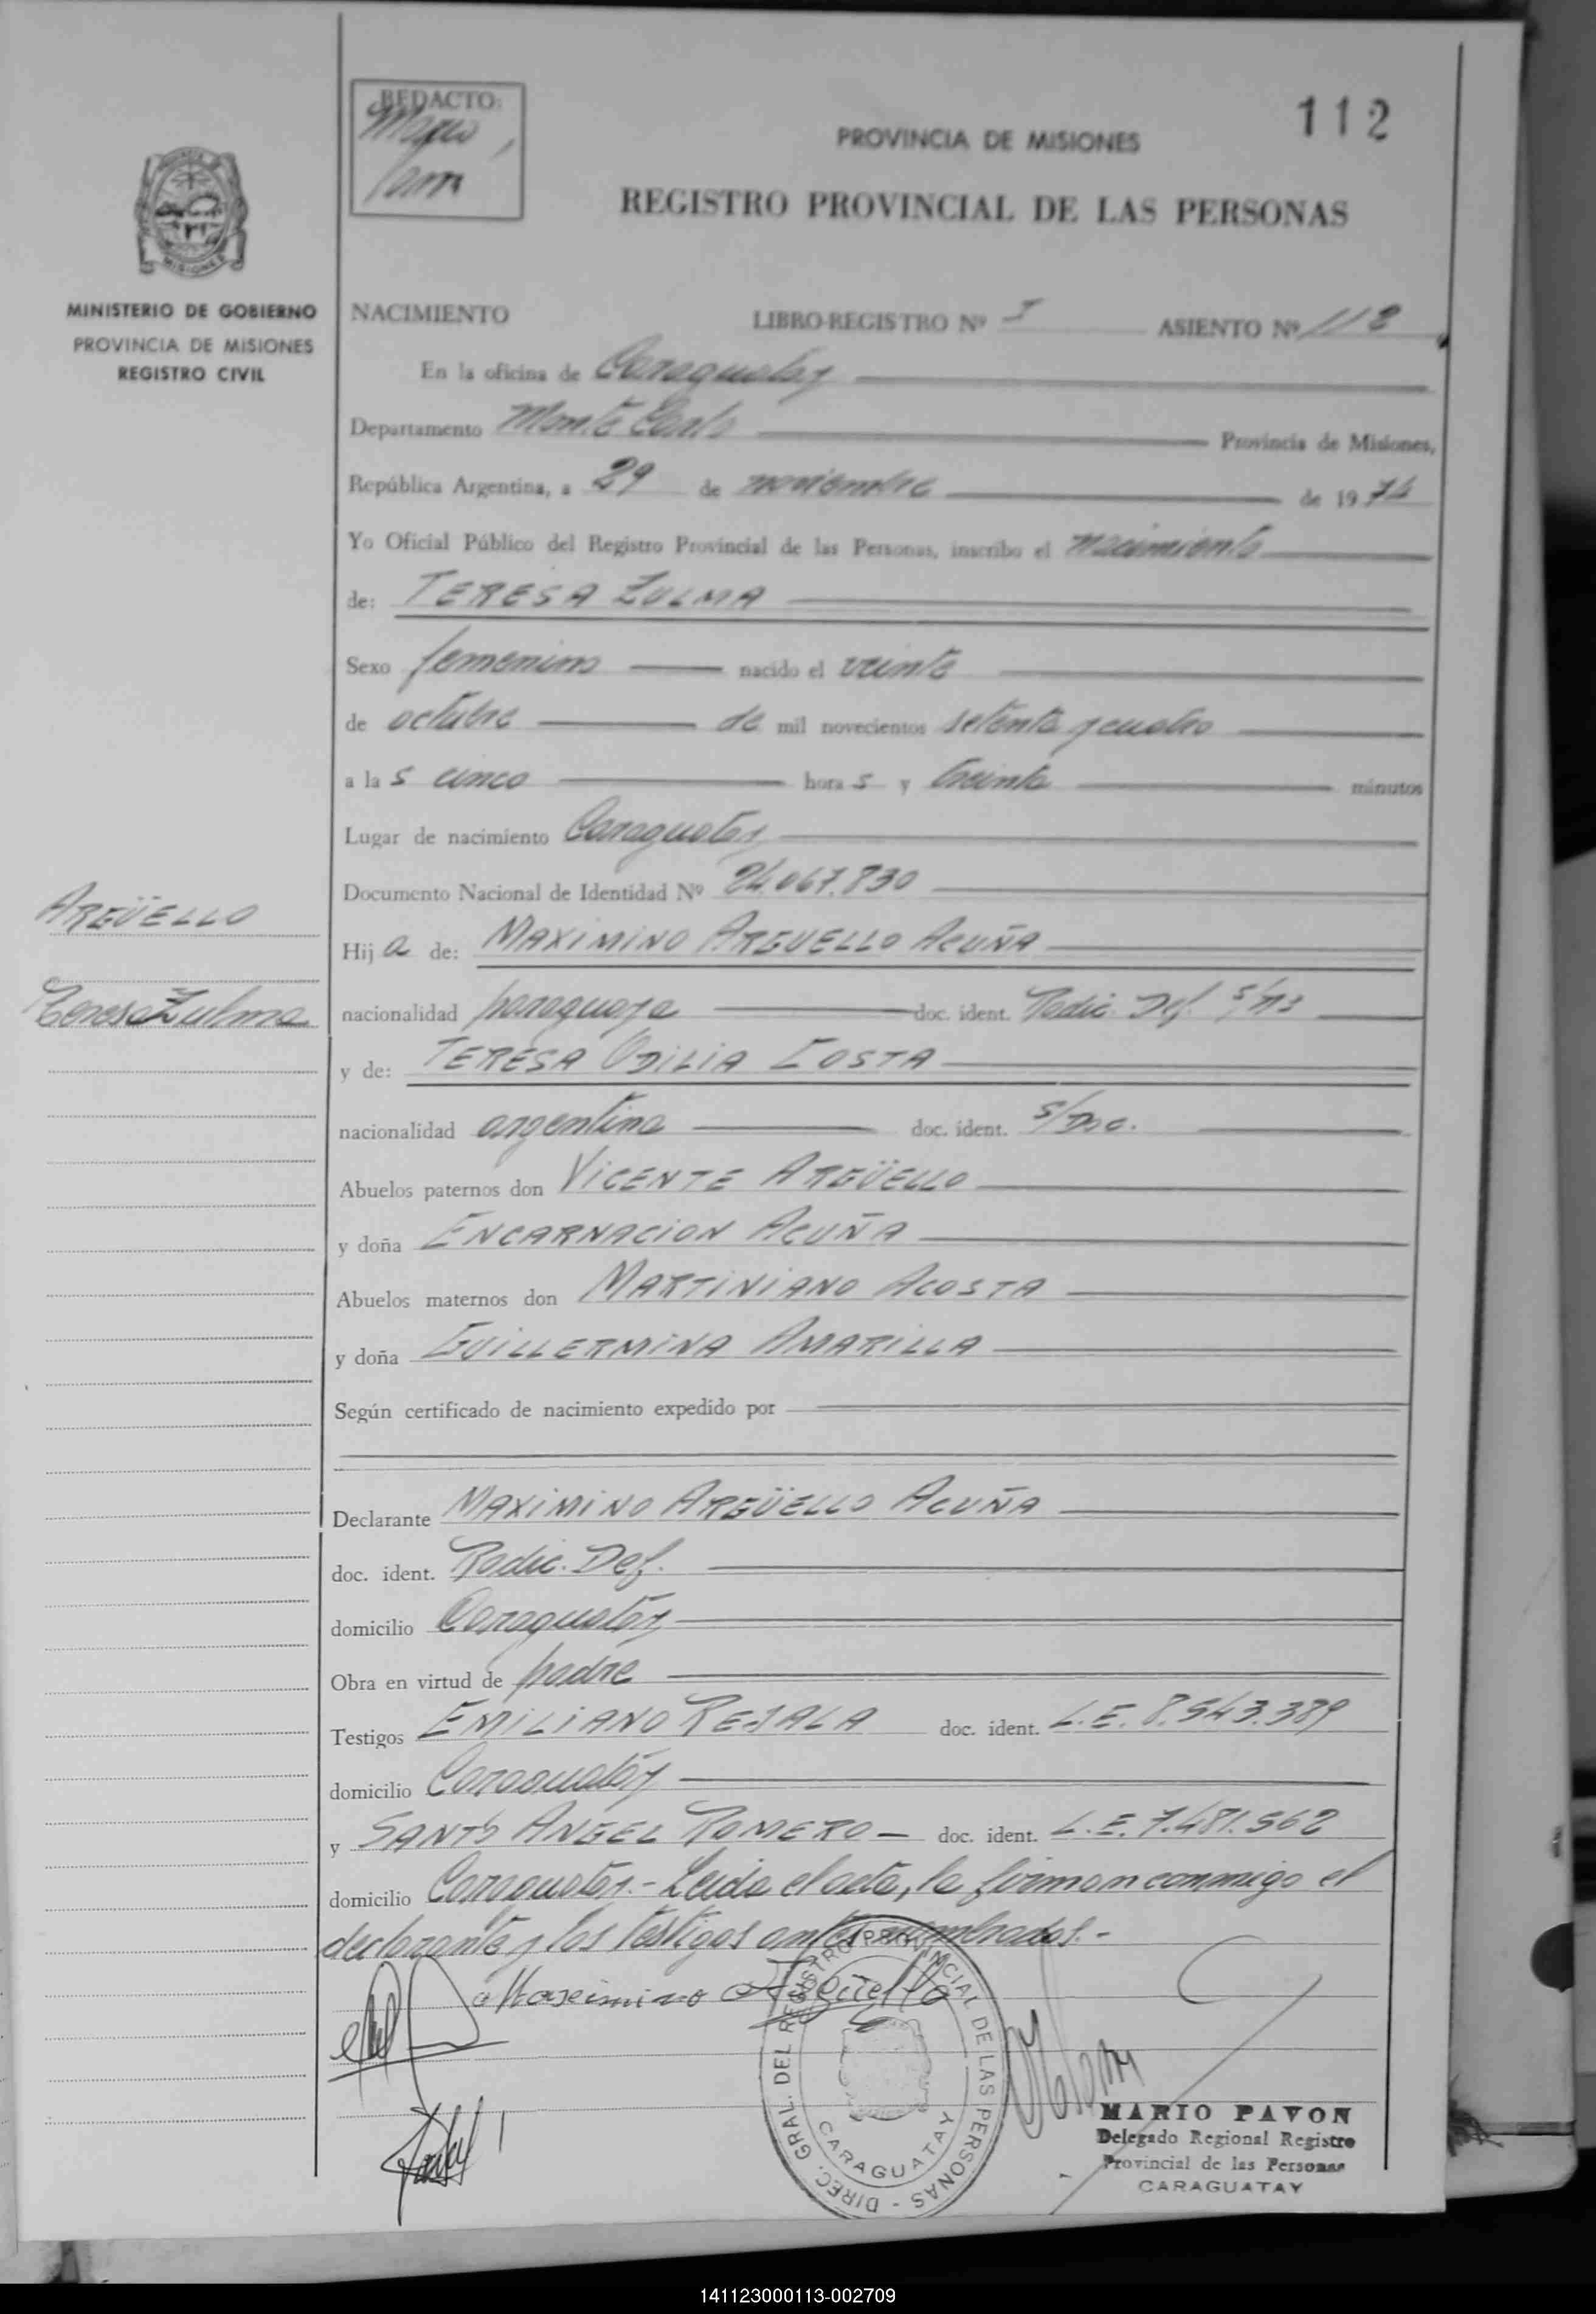 REDACTO:
112
PROVINCIA DE MISIONES
REGISTRO PROVINCIAL DE LAS PERSONAS
MISIONES
MINISTERIO DE GOBIERNO
PROVINCIA DE MISIONES
REGISTRO CIVIL
NACIMIENTO LIBRO-REGISTRO Nº I ASIENTO Nº 112
En la oficina de Caraguatay
Departamento Monte Carlo Provincia de Misiones,
República Argentina, a 29 de noviembre de 1974
Yo Oficial Público del Registro Provincial de las Personas, inscribo el nacimiento
de: TERESA ZULMA
Sexo femenino nacido el veinte
de octubre de mil novecientos setenta y cuatro
a las cinco horas y treinta minutos
Lugar de nacimiento Caraguatay
Documento Nacional de Identidad Nº 24.067.830
ARGÜELLO
Teresa Zulma
Hija de: MAXIMINO ARGUELLO ACUÑA
nacionalidad paraguaya doc. ident. Radic. Def. s/nº
y de: TERESA ODILIA COSTA
nacionalidad argentina doc. ident. s/Doc.
Abuelos paternos don VICENTE ARGÜELLO
y doña ENCARNACION ACUÑA
Abuelos maternos don MARTINIANO ACOSTA
y doña GUILLERMINA AMARILLA
Según certificado de nacimiento expedido por
Declarante MAXIMINO ARGÜELLO ACUÑA
doc. ident. Radic. Def.
domicilio Caraguatay
Obra en virtud de padre
Testigos EMILIANO REJALA doc. ident. L.E. 8.543.389
domicilio Caraguatay
y SANTOS ANGEL ROMERO - doc. ident. L.E. 7.481.562
domicilio Caraguatay.- Leida el acta, la firman conmigo el
declarante y los testigos antes nombrados.-
Maximino Argüello
DIREC. GRAL. DEL REGISTRO PROVINCIAL DE LAS PERSONAS -
CARAGUATAY
MARIO PAVON
Delegado Regional Registro
Provincial de las Personas
CARAGUATAY
141123000113-002709